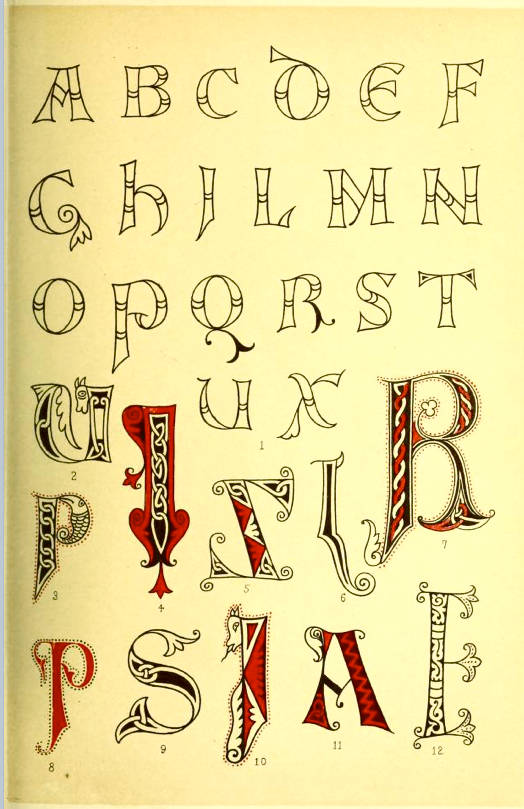 A B C D E F
G h I L M N
O P Q R S T
U X
1
2
R
7
P
3
I
4
Z
5
6
P
8
S
9
I
10
A
11
E
12